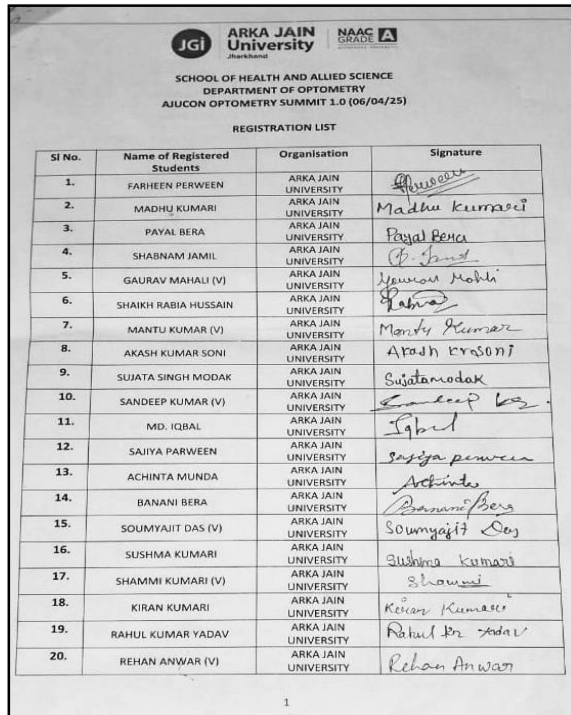 JGi ARKA JAIN University Jharkhand NAAC GRADE A
SCHOOL OF HEALTH AND ALLIED SCIENCE
DEPARTMENT OF OPTOMETRY
AJUCON OPTOMETRY SUMMIT 1.0 (06/04/25)
REGISTRATION LIST
Sl No. Name of Registered Students Organisation Signature
1. FARHEEN PERWEEN ARKA JAIN UNIVERSITY Perween
2. MADHU KUMARI ARKA JAIN UNIVERSITY Madhu Kumari
3. PAYAL BERA ARKA JAIN UNIVERSITY Payal Bera
4. SHABNAM JAMIL ARKA JAIN UNIVERSITY
5. GAURAV MAHALI (V) ARKA JAIN UNIVERSITY
6. SHAIKH RABIA HUSSAIN ARKA JAIN UNIVERSITY Rabia
7. MANTU KUMAR (V) ARKA JAIN UNIVERSITY Mantu Kumar
8. AKASH KUMAR SONI ARKA JAIN UNIVERSITY Akash kr soni
9. SUJATA SINGH MODAK ARKA JAIN UNIVERSITY Sujatamodak
10. SANDEEP KUMAR (V) ARKA JAIN UNIVERSITY Sandeep
11. MD. IQBAL ARKA JAIN UNIVERSITY Iqbal
12. SAJIYA PARWEEN ARKA JAIN UNIVERSITY Sajiya perween
13. ACHINTA MUNDA ARKA JAIN UNIVERSITY Achinta
14. BANANI BERA ARKA JAIN UNIVERSITY Banani Bera
15. SOUMYAJIT DAS (V) ARKA JAIN UNIVERSITY Soumyajit Das
16. SUSHMA KUMARI ARKA JAIN UNIVERSITY Sushma Kumari
17. SHAMMI KUMARI (V) ARKA JAIN UNIVERSITY Shammi
18. KIRAN KUMARI ARKA JAIN UNIVERSITY Kiran Kumari
19. RAHUL KUMAR YADAV ARKA JAIN UNIVERSITY Rahul kr Yadav
20. REHAN ANWAR (V) ARKA JAIN UNIVERSITY Rehan Anwar
1